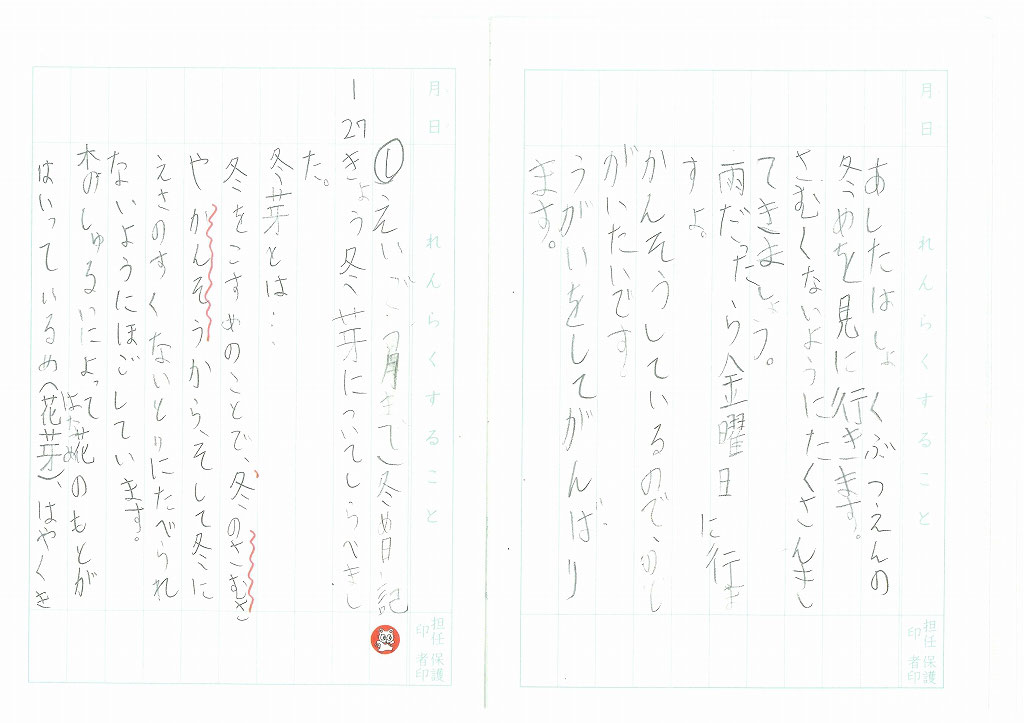 月日 れんらくすること
あしたはしょくぶつえんの
冬めを見に行きます。
さむくないようにたくさんきし
てきましょう。
雨だったら金曜日に行ま
すよ。
かんそうしているのでのし
がいたいです
うがいをしてがんばり
ます。
担任印 保護者印
月日 れんらくすること
① えいご 冬め日記
1 27 きょう冬芽についてしらべまし
た。
冬芽とは…
冬をこすめのことで、冬のさむさ
やかんそうから、そして冬に
えさのすくないとりにたべられ
ないようにほごしています。
木のしゅるいによって花のもとが
はいっているめ(花芽)、はやくき
はなめ
担任印 保護者印